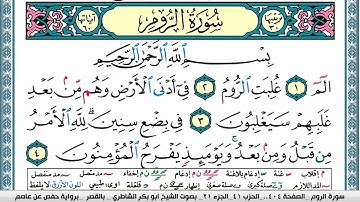 سُورَةُ الرُّومِ
ترتيبها ٣٠
آياتها ٦٠
بِسْمِ اللَّهِ الرَّحْمَٰنِ الرَّحِيمِ
الٓمٓ ١ غُلِبَتِ الرُّومُ ٢ فِىٓ أَدْنَى الْأَرْضِ وَهُم مِّنۢ بَعْدِ
غَلَبِهِمْ سَيَغْلِبُونَ ٣ فِى بِضْعِ سِنِينَ ۗ لِلَّهِ الْأَمْرُ
مِن قَبْلُ وَمِنۢ بَعْدُ ۚ وَيَوْمَئِذٍ يَفْرَحُ الْمُؤْمِنُونَ ٤
سورة الروم الصفحة ٤٠٤ الجزء ٢١ بصوت الشيخ أبو بكر الشاطري بالقصر برواية حفص عن عاصم